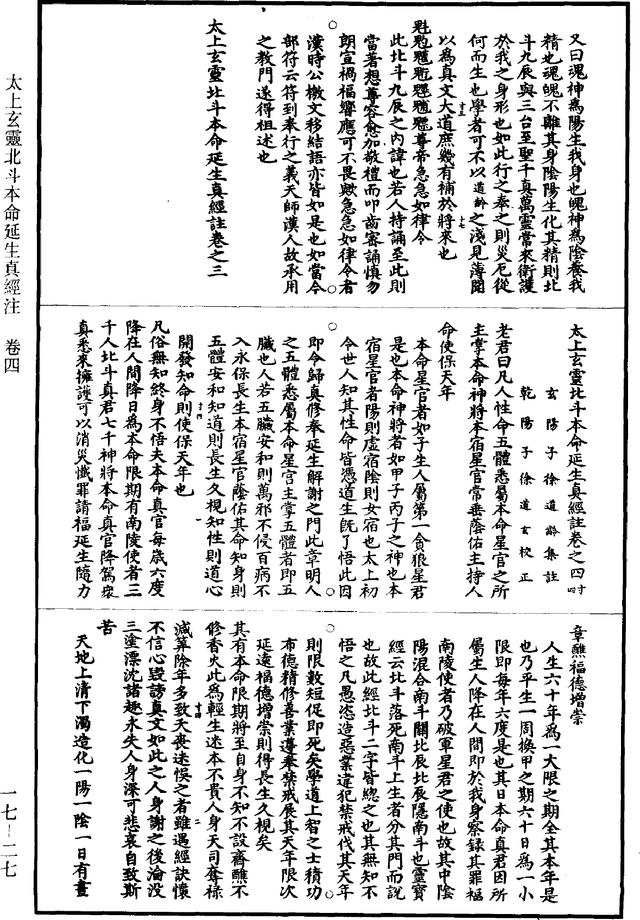 又曰魂神為陽生我身也魄神為陰養我
精也魂魄不離其身陰陽生化其精則北
斗九辰與三台至聖千真萬靈常來衛護
於我之身形也如此行之奉之則災厄從
何而生也學者可不以道齡之淺見薄聞
以為真文大道庶幾有補於將來也
尊帝急急如律令
此北斗九辰之內諱也若人持誦至此則
當著想尊容愈加敬禮而叩齒密誦慎勿
朗宣禍福響應可不畏歟急急如律令者
漢時公檄文移結語亦皆如是也如當今
部符云符到奉行之義天師漢人故承用
之教門遂得祖述也
太上玄靈北斗本命延生真經註卷之三
太上玄靈北斗本命延生真經註卷之四
玄陽子徐道齡集註
乾陽子徐道玄校正
老君曰凡人性命五體悉屬本命星官之所
主掌本命神將本宿星官常垂蔭佑主持人
命使保天年
本命星官者如子生人屬第一貪狼星君
是也本命神將者如甲子丙子之神也本
宿星官者陽則虛宿陰則女宿也太上初
令世人知其性命皆憑道生旣了悟此因
即令歸真修奉延生解謝之門此章明人
之五體悉屬本命星宮主掌五體者即五
臟也人若五臟安和則萬邪不侵百病不
入永保長生本宿星官蔭佑其命知身則
五體安和知道則長生久視知性則道心
開發知命則使保天年也
凡俗無知終身不悟夫本命真官每歲六度
降在人間降日為本命限期有南陵使者三
千人北斗真君七千神將本命真官降駕衆
真悉來擁護可以消災懺罪請福延生隨力
章醮福德增崇
人生六十年為一大限之期全其本年是
也乃平生一周換甲之期六十日為一小
限即每年六度是也其日本命真君因所
屬生人降在人間即於我身察錄其罪福
南陵使者乃破軍星君之使也故其中陰
陽混合南斗關北辰北辰隱南斗也靈寶
經云北斗落死南斗上生者分其門而說
也故此經北斗二字皆總之也其無知不
悟之凡愚恣造惡業違犯禁戒伐其天年
則限數短促即死矣學道上智之士積功
布德精修善業遵奉禁戒展其天年限次
延遠福德增崇則得長生久視矣
其有本命限期將至自身不知不設齋醮不
修香火此為輕生迷本不貴人身天司奪祿
減筭除年多致夭喪迷悞之者雖遇經訣懷
不信心毀謗真文如此之人身謝之後淪沒
三塗漂沈諸趣永失人身深可悲哀自致斯
苦
天地上清下濁造化一陽一陰一日有晝
太上玄靈北斗本命延生真經注　卷四
一七―二七